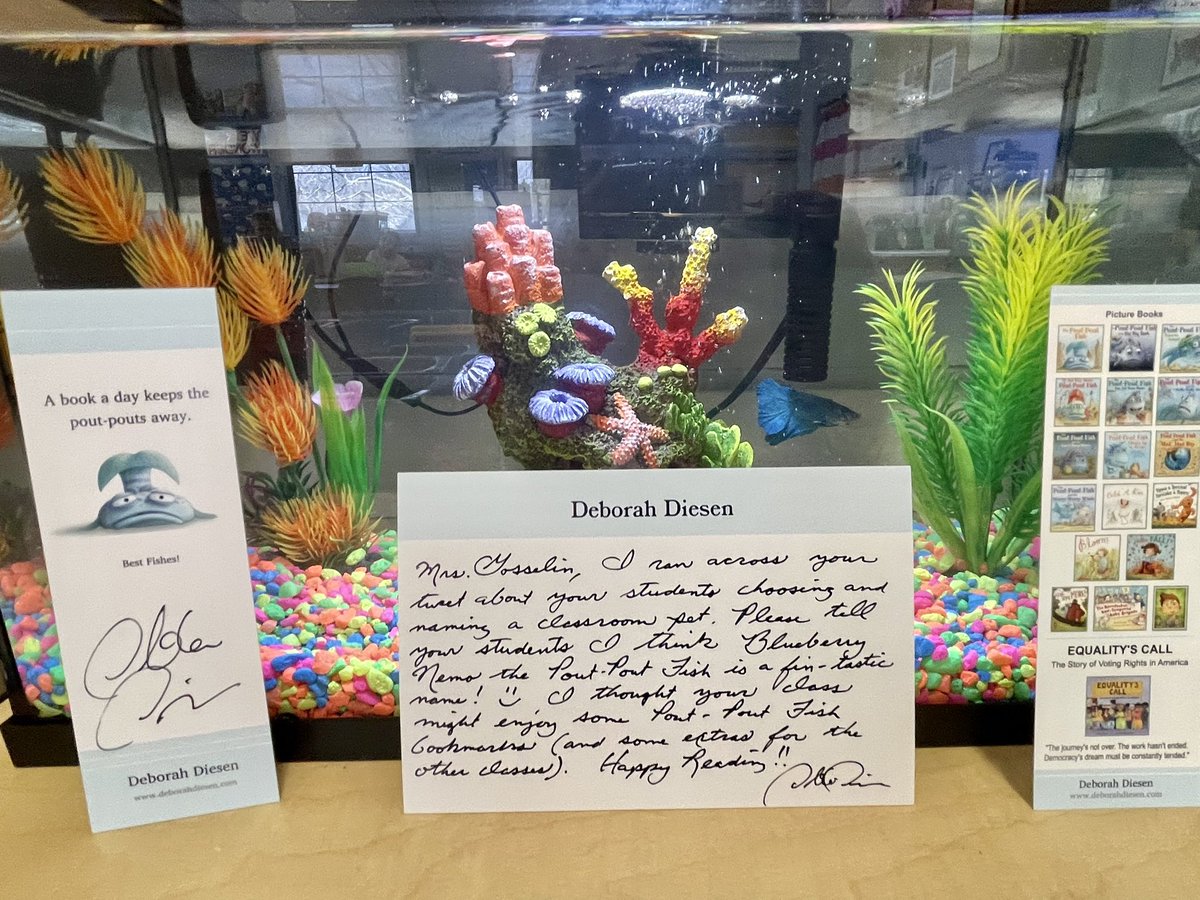 A book a day keeps the
pout-pouts away.
Best Fishes!
Deborah Diesen
www.deborahdiesen.com
Deborah Diesen
Mrs. Gosselin, I ran across your
tweet about your students choosing and
naming a classroom pet. Please tell
your students I think Blueberry
Nemo the Pout-Pout Fish is a fin-tastic
name! I thought your class
might enjoy some Pout-Pout Fish
bookmarks (and some extras for the
other classes). Happy Reading!!
Picture Books
EQUALITY'S CALL
The Story of Voting Rights in America
EQUALITY'S
CALL
"The journey's not over. The work hasn't ended.
Democracy's dream must be constantly tended."
Deborah Diesen
www.deborahdiesen.com